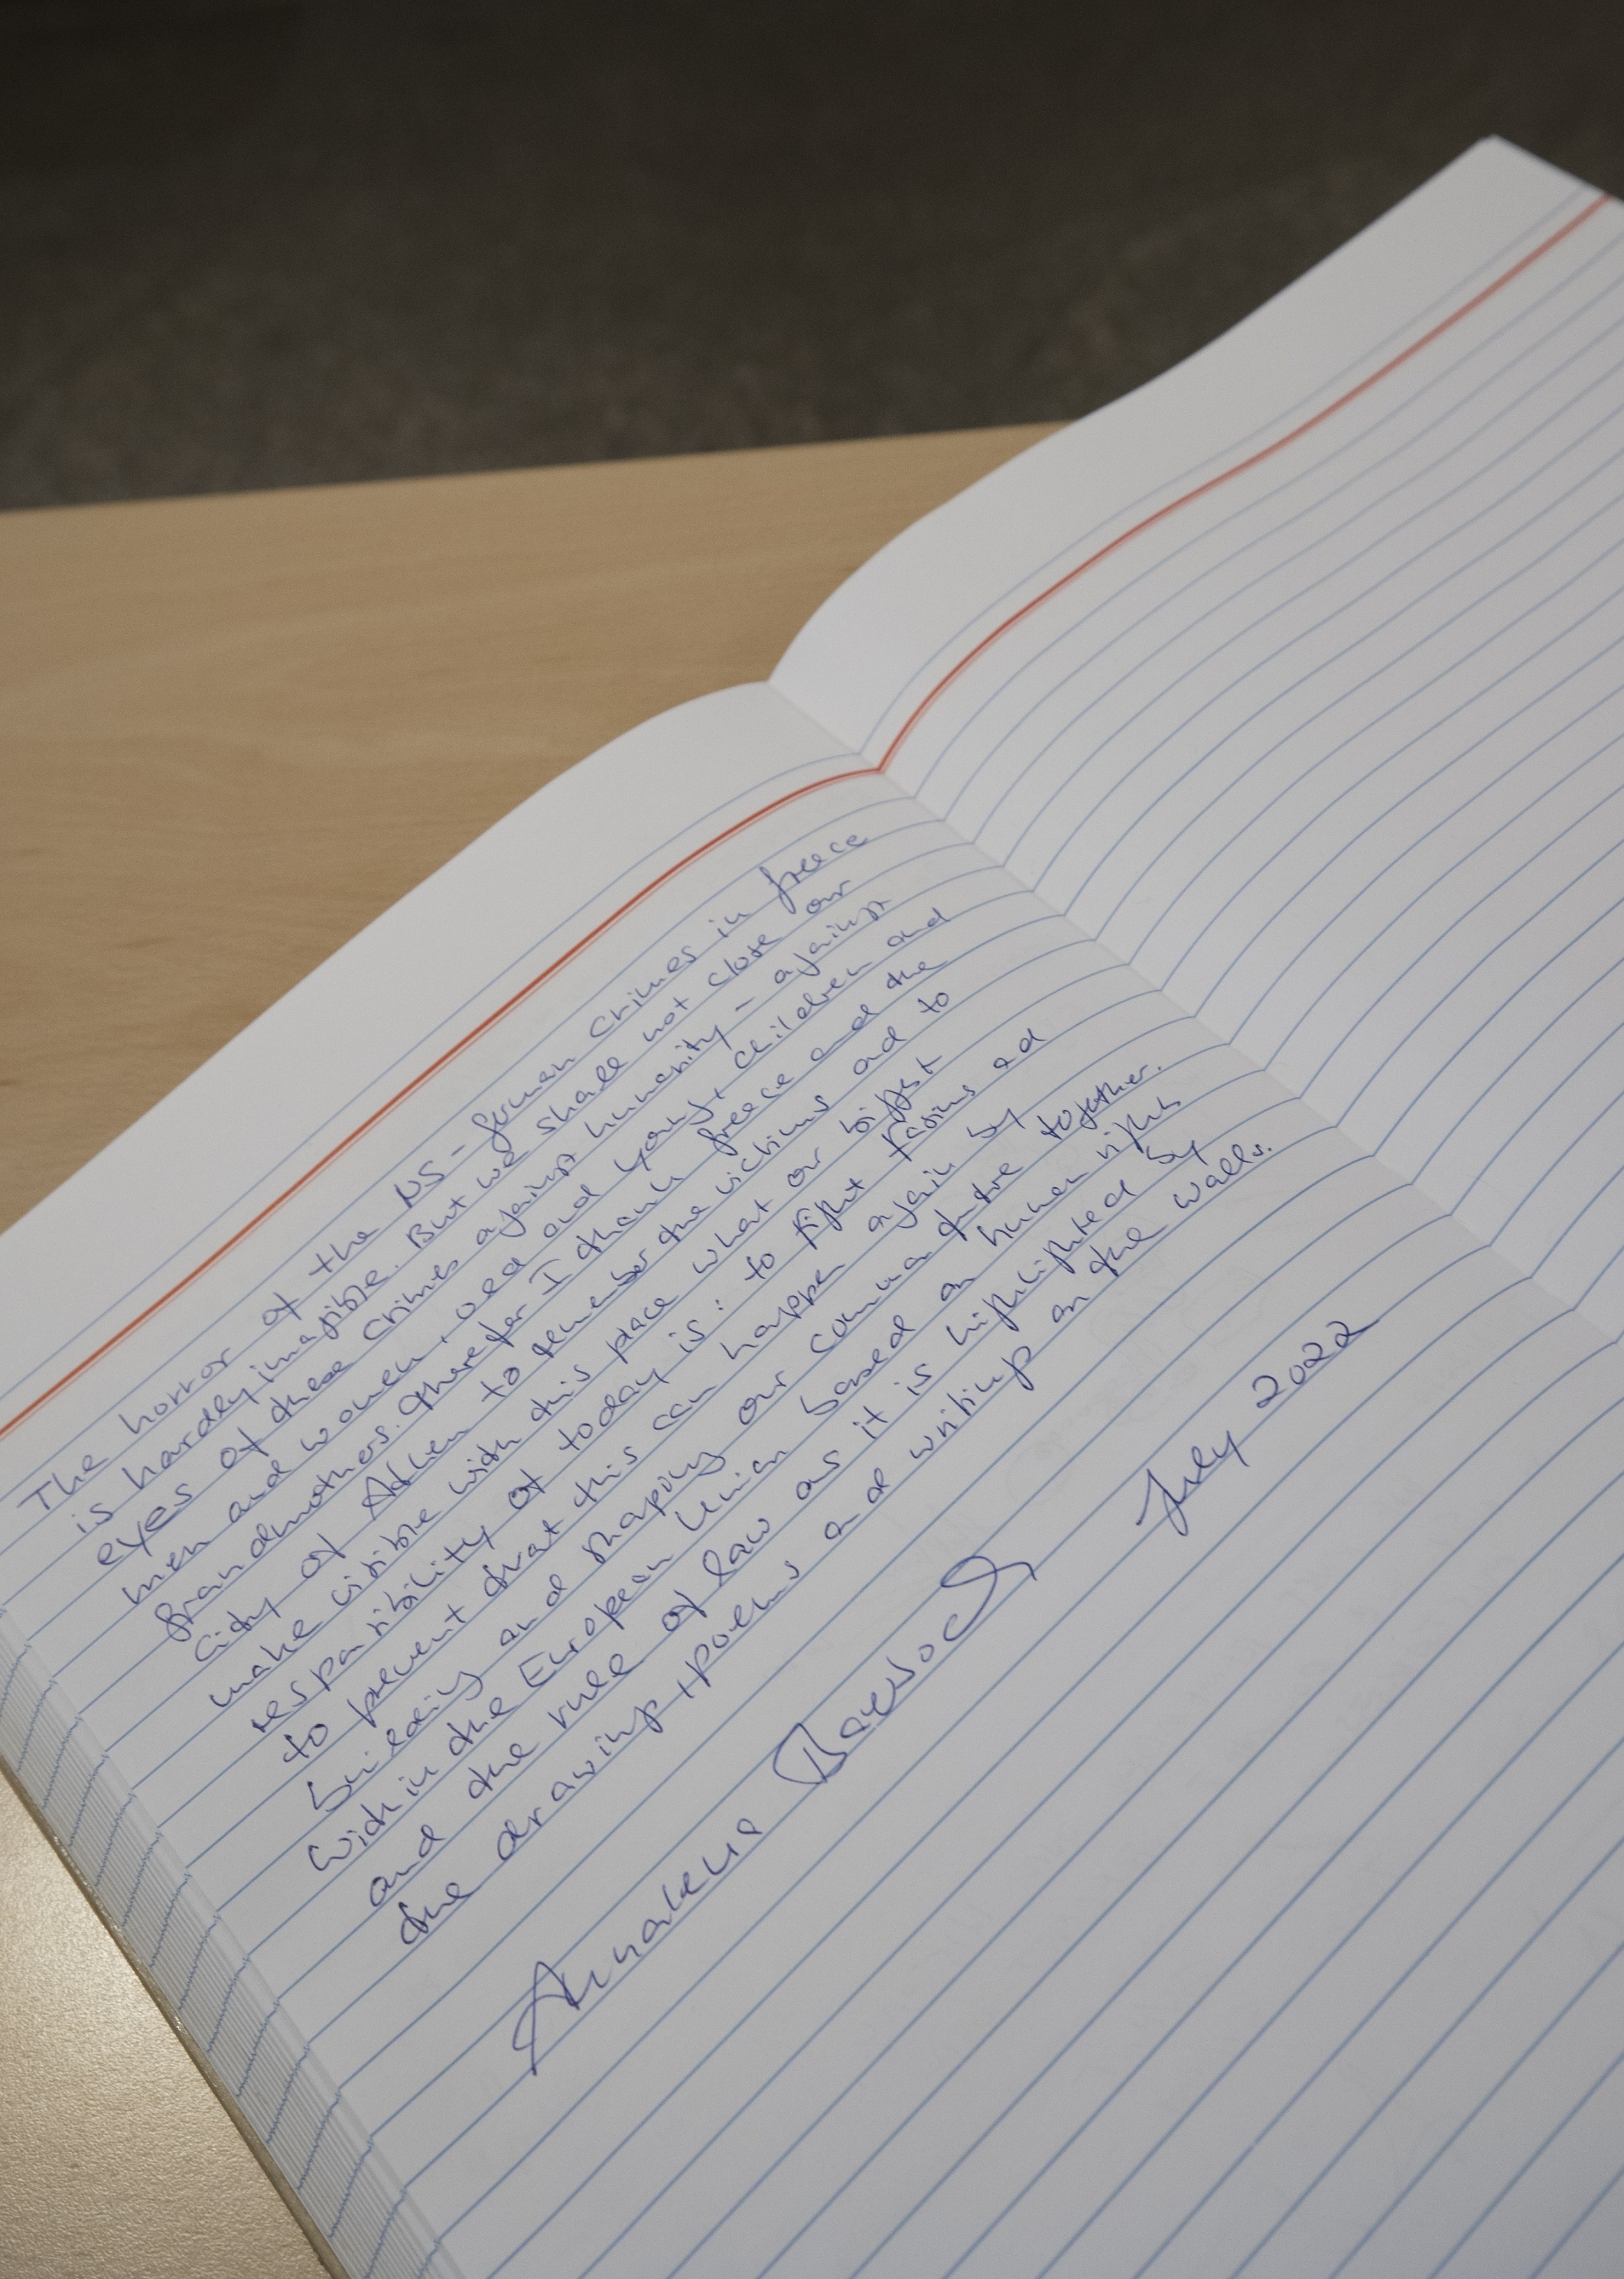 The horror of the NS-German crimes in Greece
is hardly imagible. But we shall not close our
eyes of these crimes against humanity - against
men and women, old and young, children and
grandmothers. Therefor I thank Greece and the
city of Athen to remember the victims and to
make visible with this place what our biggest
responsibility of today is: to fight facims ad
to prevent that this can happen again by
building and shaping our common future together.
Within the European Union based on human rights
and the rule of law as it is highlighted by
the drawing, poems and writing on the walls.
Annalena Baerbock
July 2022